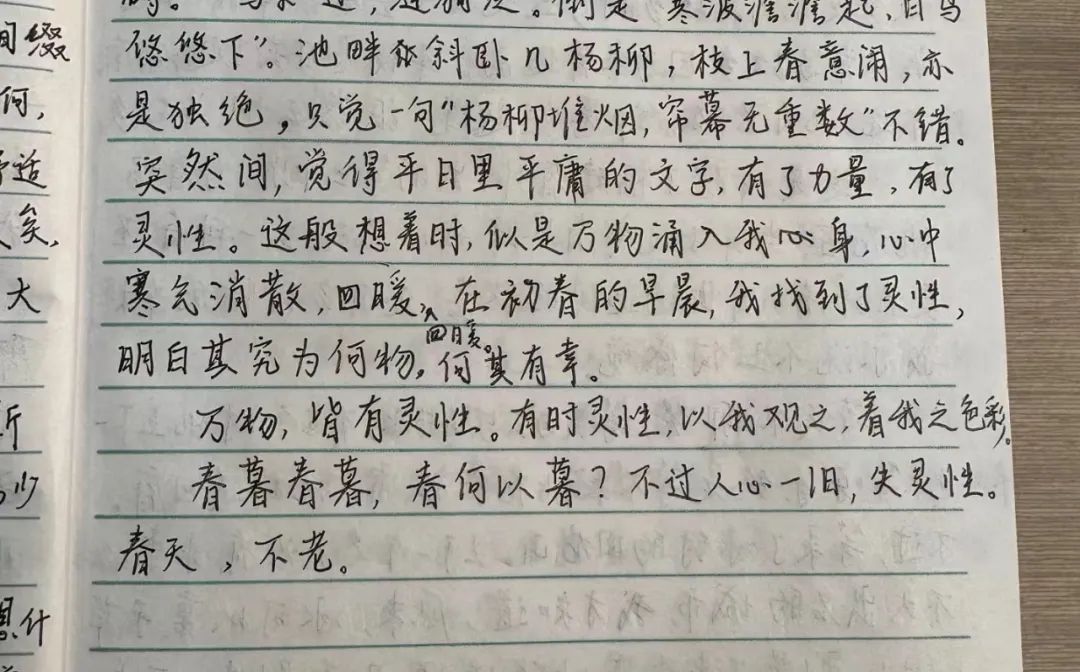 悠悠下”。池畔斜卧几杨柳，枝上春意闹，亦
是独绝，只觉一句“杨柳堆烟，帘幕无重数”不错。
突然间，觉得平日里平庸的文字，有了力量，有了
灵性。这般想着时，似是万物涌入我心身，心中
寒气消散，回暖，在初春的早晨，我找到了灵性，
回暖。
明白其究为何物。何其有幸。
万物，皆有灵性。有时灵性，以我观之，着我之色彩。
春暮春暮，春何以暮？不过人心一旧，失灵性。
春天，不老。